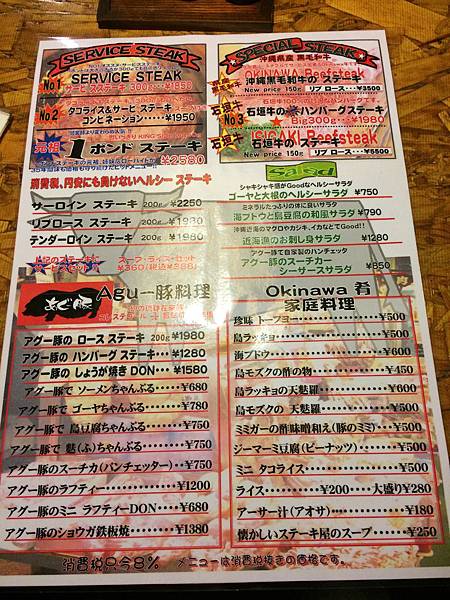 SERVICE STEAK
No1
SERVICE STEAK
サービス ステーキ 300g・・・¥1850
No2
タコライス&サービ ステーキ
コンビネーション・・・・¥1950
元祖 1ポンド ステーキ
¥2580
消費税、円安にも負けないヘルシー ステーキ
サーロイン ステーキ 200g ¥2250
リブロース ステーキ 200g ¥1930
テンダーロイン ステーキ 200g ¥1980
上記のステーキに
スープ・ライス・セット
SPECIAL STEAK
沖縄県産 黒毛和牛
OKINAWA Beefsteak
沖縄黒毛和牛の ステーキ
New price 150g リブ ロース ・・・¥3500
石垣牛
No3
石垣牛の ハンバーグステーキ
Big300g・・・¥1980
ISIGAKI Beefsteak
石垣牛の ステーキ
New price 150g リブ ロース ・・・¥5500
Salad
シャキシャキ感がGoodなヘルシーサラダ
ゴーヤと大根のヘルシーサラダ ¥750
ミネラルたっぷりの体に良いサラダ
海ブドウと島豆腐の和風サラダ ¥790
沖縄近海のマグロやカジキ、イカなどでGood!!
近海漁のお刺し身サラダ ¥1280
アグー豚で自家製のパンチェッタ
アグー豚のスーチカー
シーサーズサラダ ¥850
あぐー豚
Aguー豚料理
アグー豚の ロース ステーキ 200g ¥1980
アグー豚の ハンバーグ ステーキ・・・¥1280
アグー豚の しょうが焼き DON・・・¥1580
アグー豚で ソーメンちゃんぷる・・・・¥680
アグー豚で ゴーヤちゃんぷる・・・・・¥780
アグー豚で 島豆腐ちゃんぷる・・・・・¥750
アグー豚で 麩(ふ)ちゃんぷる・・・・・¥750
アグー豚のスーチカ(パンチェッター)・・・¥750
アグー豚のラフティー・・・・・・・¥1200
アグー豚のミニ ラフティーDON・・・・¥680
アグー豚のショウガ鉄板焼・・・・・¥1380
Okinawa 肴
家庭料理
珍味 トーフヨー・・・・・・・・・¥500
島ラッキョ・・・・・・・・・・・¥500
海ブドウ・・・・・・・・・・・・¥600
島モズクの酢の物・・・・・・・・¥450
島ラッキョの天麩羅・・・・・・・¥600
島モズクの 天麩羅・・・・・・・¥600
ミミガーの酢味噌和え(豚のミミ)・・¥500
ジーマーミ豆腐(ピーナッツ)・・・・¥500
ミニ タコライス・・・・・・・・・¥500
ライス・・・・¥200・・・大盛り¥280
アーサー汁(アオサ)・・・・・・・¥180
懐かしいステーキ屋のスープ・・・・¥250
消費税只今8% メニューは消費税抜きの価格です。